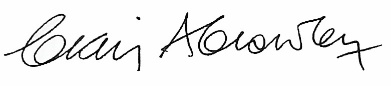 Craig A Crowley